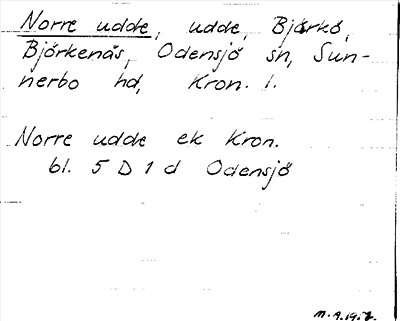 Norre udde, udde, Björkö,
Björkenäs, Odensjö sn, Sun-
nerbo hd, Kron. l.
Norre udde ek Kron.
bl. 5 D 1 d Odensjö